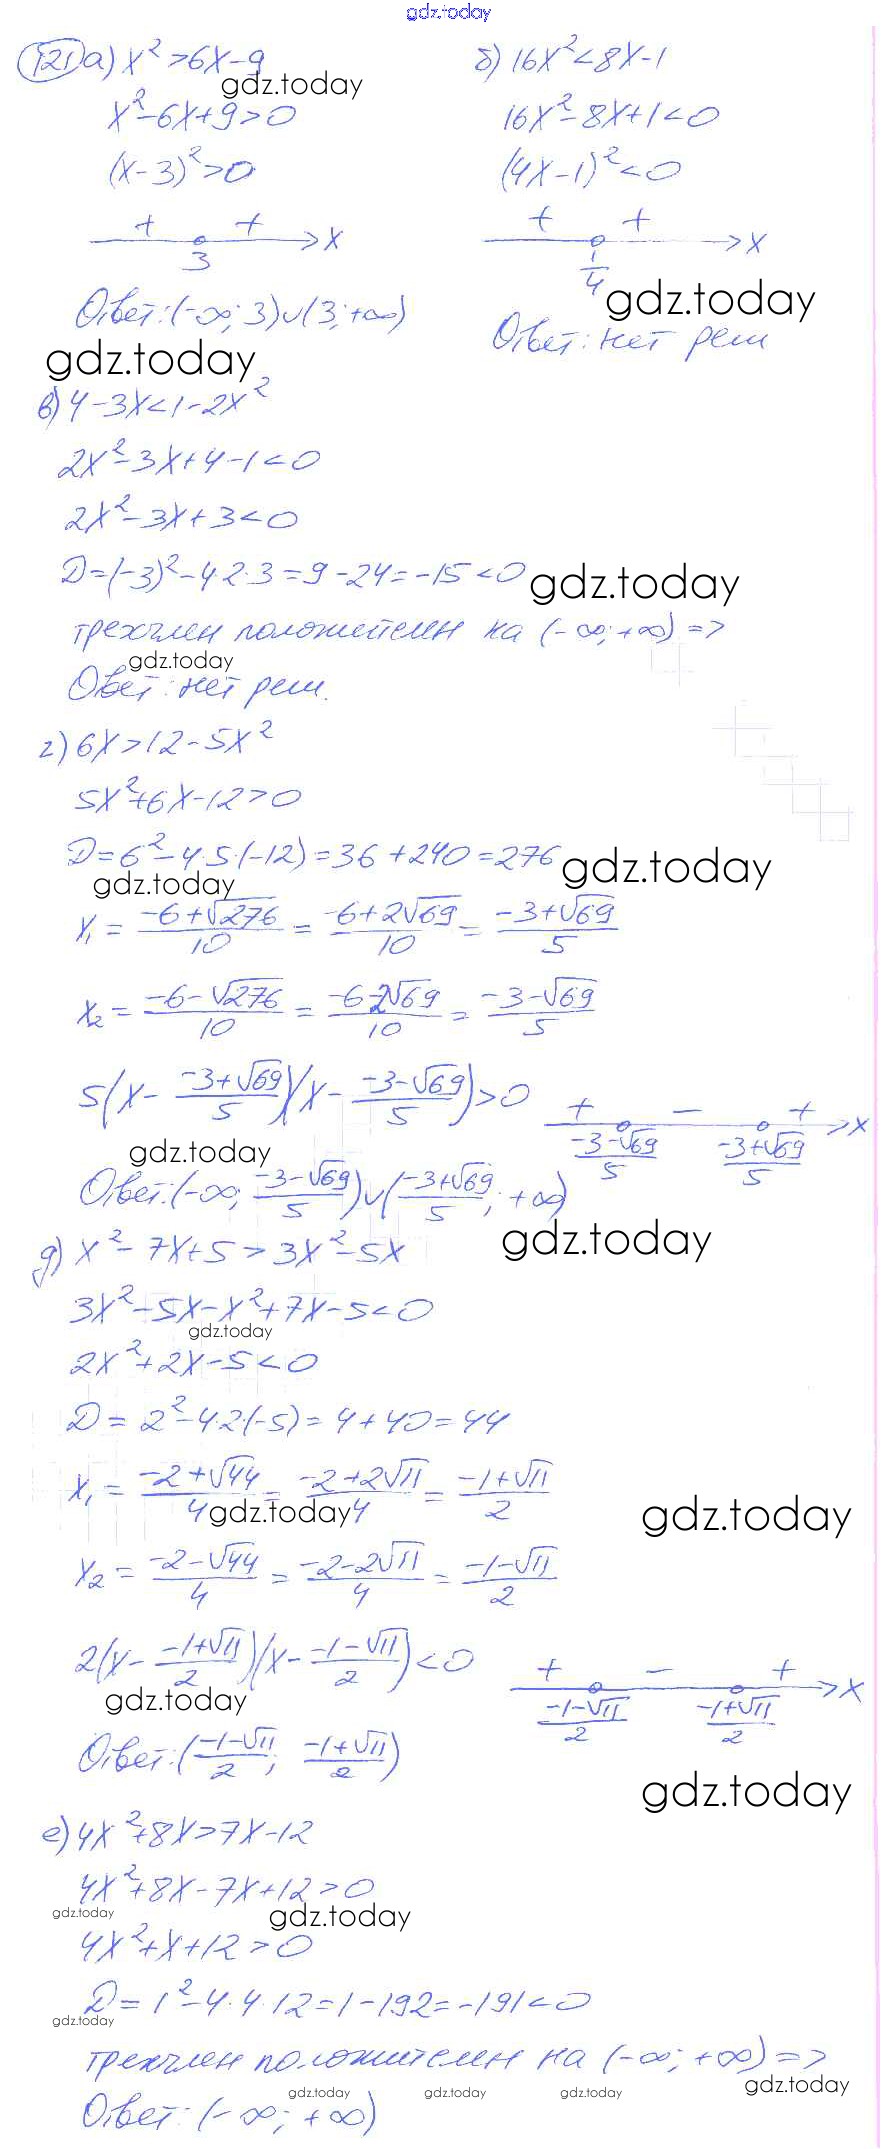 gdz.today
121 а) x² > 6x - 9
gdz.today
x² - 6x + 9 > 0
(x - 3)² > 0
+ + x
3
Ответ: (-∞; 3) ∪ (3; +∞)
gdz.today
б) 16x² < 8x - 1
16x² - 8x + 1 < 0
(4x - 1)² < 0
+ + x
1/4
gdz.today
Ответ: нет реш
в) 4 - 3x < 1 - 2x²
2x² - 3x + 4 - 1 < 0
2x² - 3x + 3 < 0
D = (-3)² - 4·2·3 = 9 - 24 = -15 < 0
gdz.today
трехчлен положителен на (-∞; +∞) =>
gdz.today
Ответ: нет реш.
г) 6x > 12 - 5x²
5x² + 6x - 12 > 0
D = 6² - 4·5·(-12) = 36 + 240 = 276
gdz.today
gdz.today
x₁ = (-6+√276)/10 = (-6+2√69)/10 = (-3+√69)/5
x₂ = (-6-√276)/10 = (-6-2√69)/10 = (-3-√69)/5
5(x - (-3+√69)/5)(x - (-3-√69)/5) > 0
+ - + x
(-3-√69)/5 (-3+√69)/5
gdz.today
Ответ: (-∞; (-3-√69)/5) ∪ ((-3+√69)/5; +∞)
gdz.today
д) x² - 7x + 5 > 3x² - 5x
3x² - 5x - x² + 7x - 5 < 0
gdz.today
2x² + 2x - 5 < 0
D = 2² - 4·2·(-5) = 4 + 40 = 44
x₁ = (-2+√44)/4 = (-2+2√11)/4 = (-1+√11)/2
gdz.today
gdz.today
x₂ = (-2-√44)/4 = (-2-2√11)/4 = (-1-√11)/2
2(x - (-1+√11)/2)(x - (-1-√11)/2) < 0
+ - + x
(-1-√11)/2 (-1+√11)/2
gdz.today
Ответ: ((-1-√11)/2; (-1+√11)/2)
gdz.today
е) 4x² + 8x > 7x - 12
4x² + 8x - 7x + 12 > 0
gdz.today
gdz.today
4x² + x + 12 > 0
D = 1² - 4·4·12 = 1 - 192 = -191 < 0
gdz.today
трехчлен положителен на (-∞; +∞) =>
gdz.today
gdz.today gdz.today gdz.today
Ответ: (-∞; +∞)